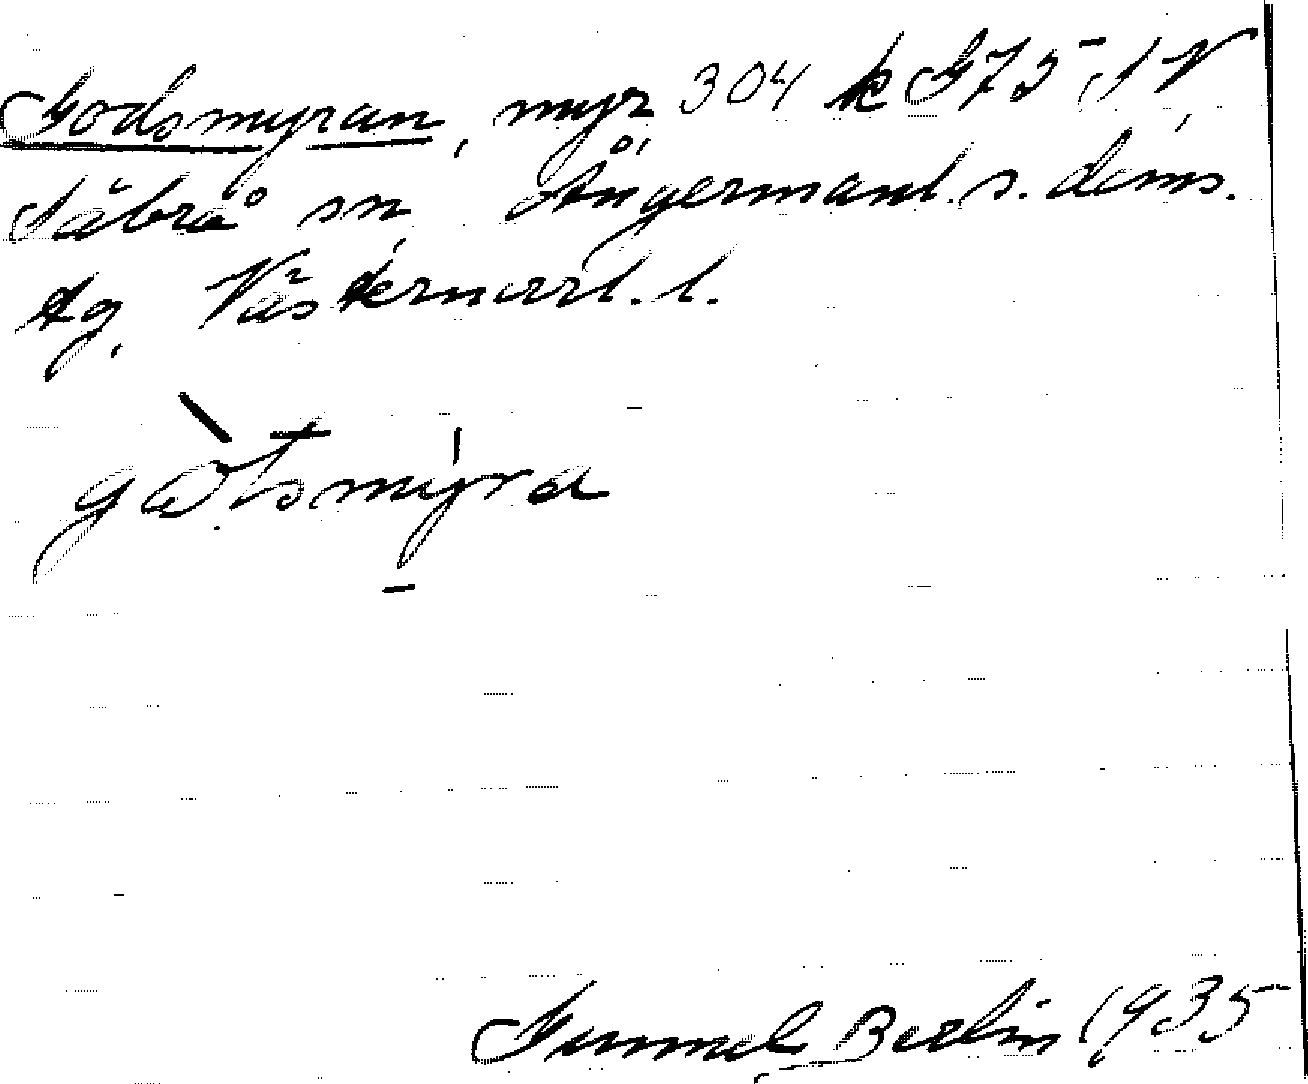 Godsmyran, myr 304 k G75 SV
Säbrå sn, Ångermanl. s. doms.
tg, Västernorrl. l.
gåtsmyra
Gunnel Berlin 1935